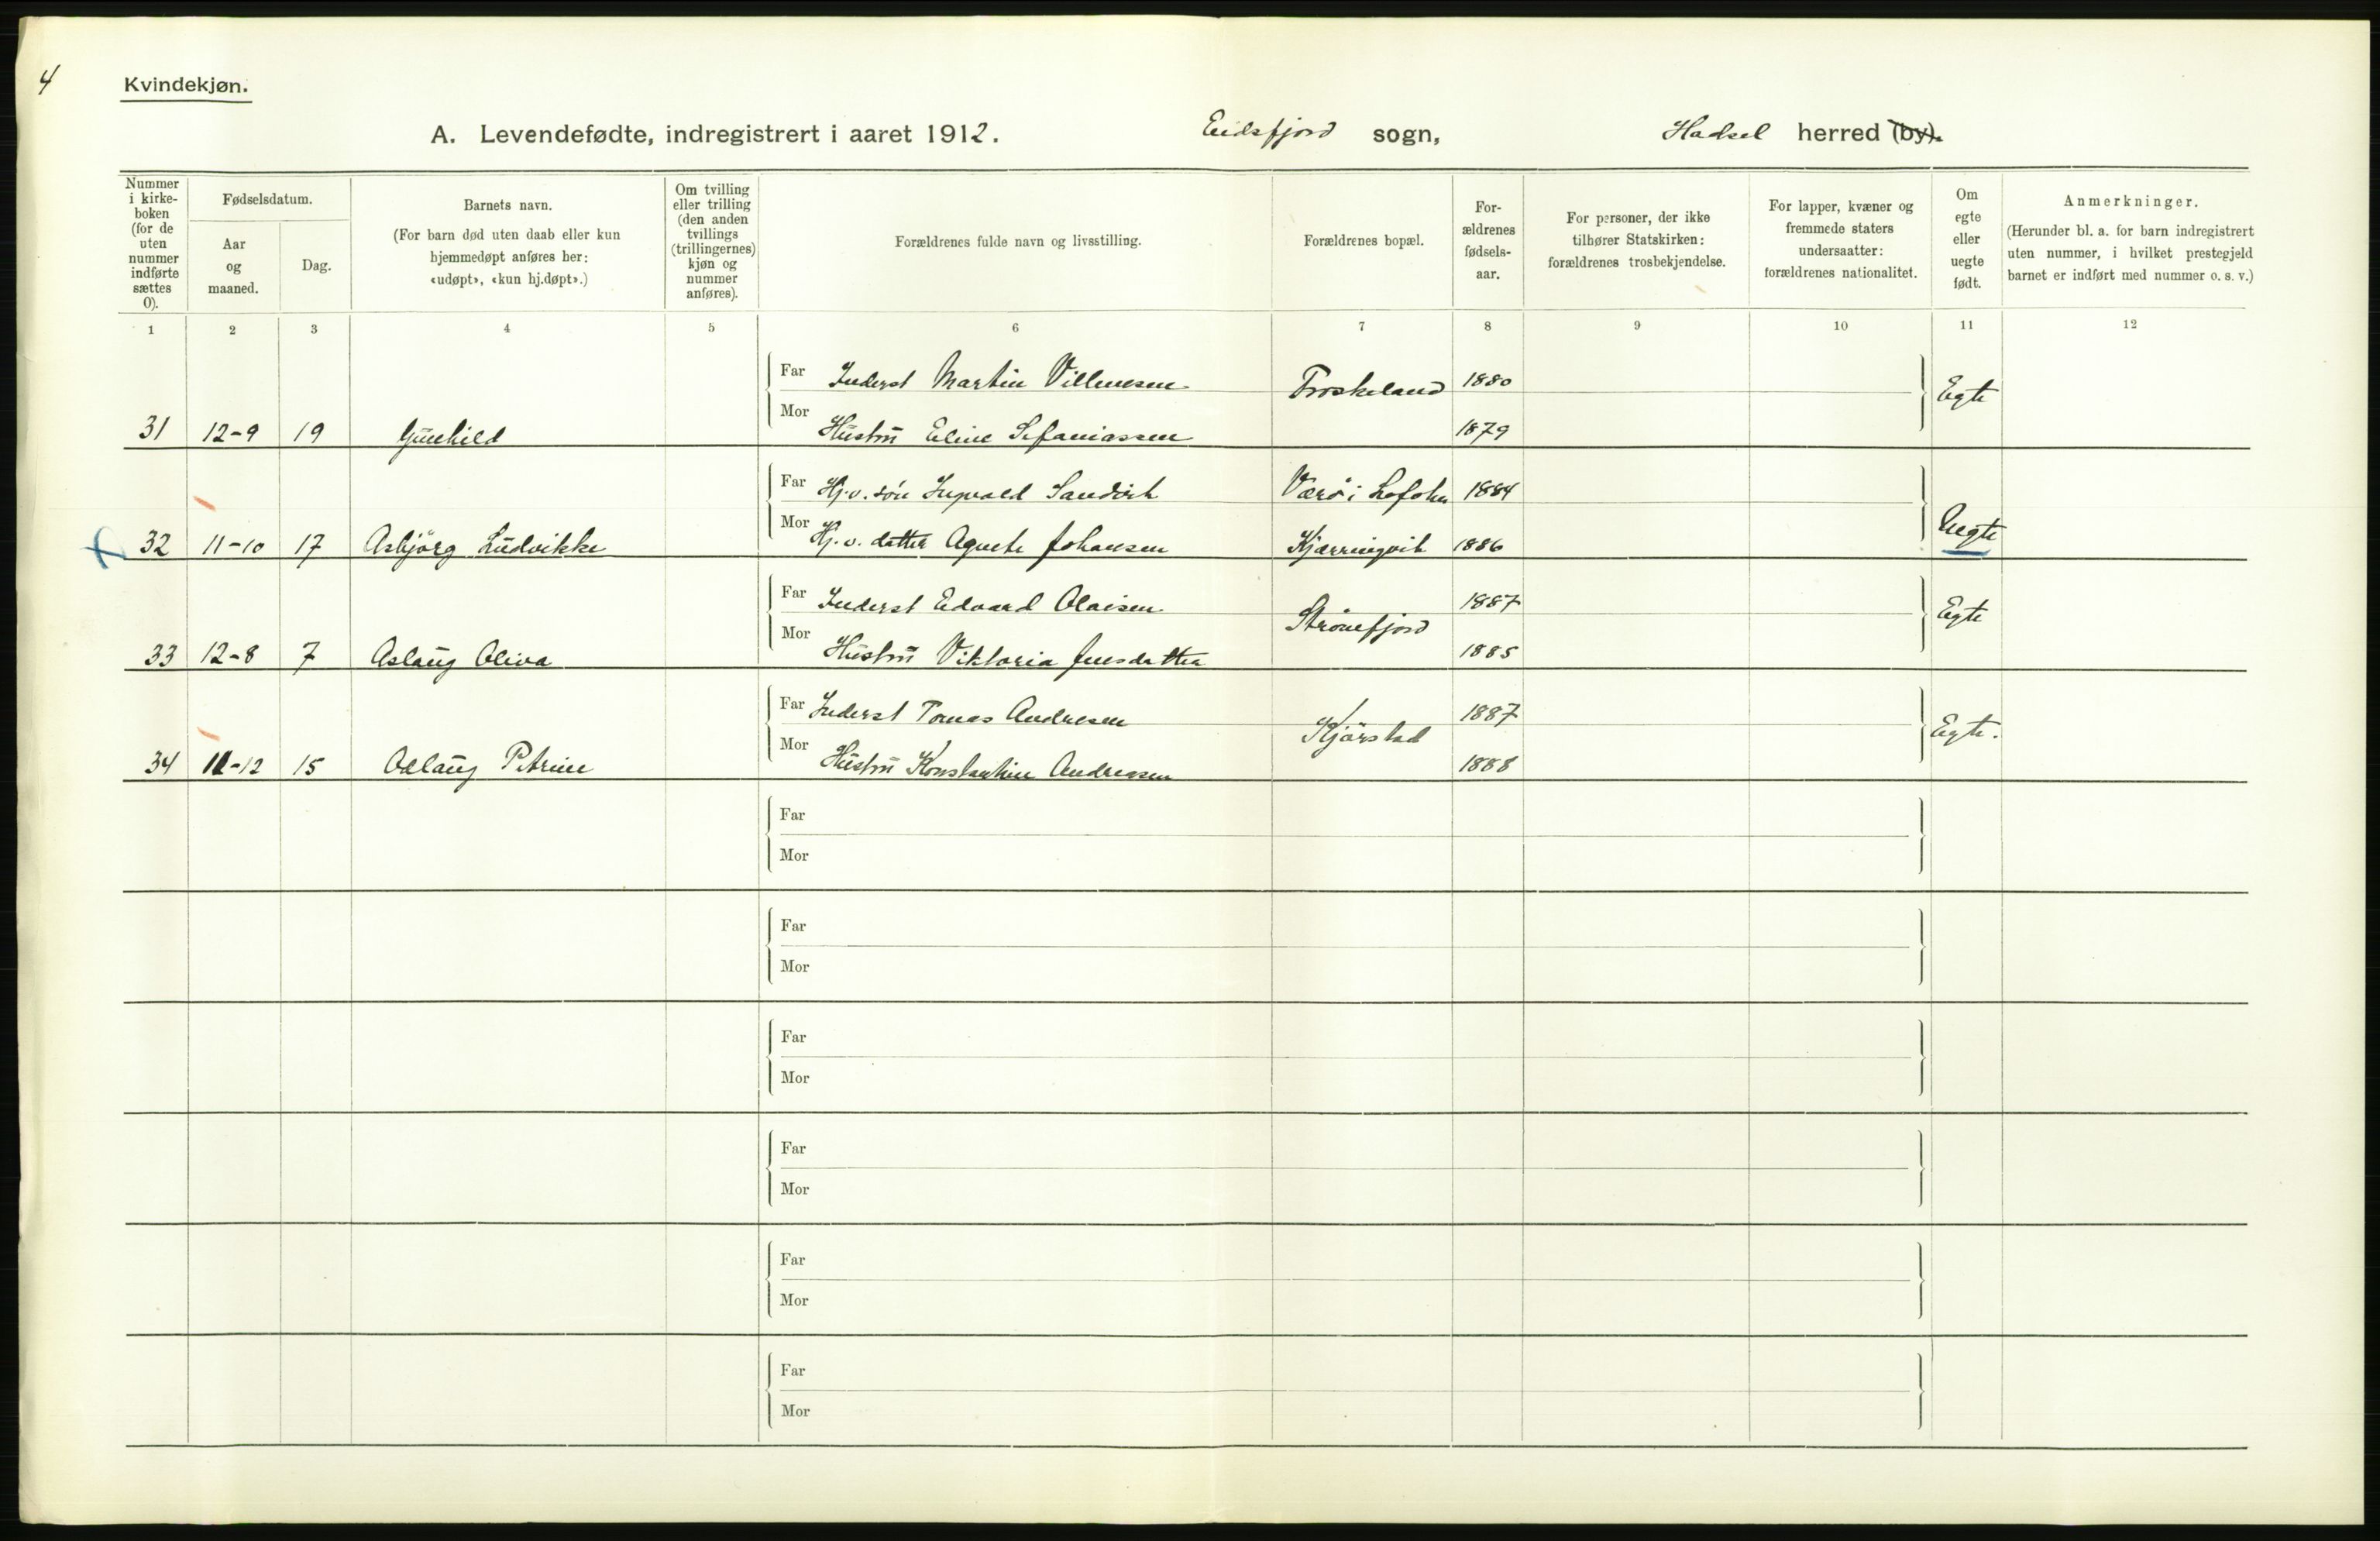 4
Kvindekjøn.
A. Levendefødte, indregistrert i aaret 1912. Eidsfjord sogn, Hadsel herred (by).
Nummer i kirkeboken (for de uten nummer indførte sættes 0).
Fødselsdatum.
Aar og maaned.
Dag.
Barnets navn.
(For barn død uten daab eller kun hjemmedøpt anføres her: «udøpt», «kun hj.døpt».)
Om tvilling eller trilling (den anden tvillings (trillingernes) kjøn og nummer anføres).
Forældrenes fulde navn og livsstilling.
Forældrenes bopæl.
For-
ældrenes
fødsels-
aar.
For personer, der ikke
tilhører Statskirken:
forældrenes trosbekjendelse.
For lapper, kvæner og
fremmede staters
undersaatter:
forældrenes nationalitet.
Om
egte
eller
uegte
født.
Anmerkninger.
(Herunder bl. a. for barn indregistrert
uten nummer, i hvilket prestegjeld
barnet er indført med nummer o. s. v.)
1 2 3 4 5 6 7 8 9 10 11 12
Far Inderst Martin Villumsen Froskeland 1880 Egte
31 12-9 19 Gunhild Mor Hustru Eline Sefaniassen 1879
Far Hj.v. søn Ingvald Sandvik Værö i Lofoten 1884
32 11-10 17 Asbjörg Ludvikke Mor Hj.v. datter Agnete Johansen Kjærringvik 1886 Uegte
Far Inderst Edvard Olaisen Strönefjord 1887 Egte
33 12-8 7 Aslaug Oliva Mor Hustru Viktoria Jensdatter 1885
Far Inderst Tomas Andresen Kjörstad 1887 Egte.
34 11-12 15 Odlaug Petrine Mor Hustru Konstantine Andreasen 1888
Far
Mor
Far
Mor
Far
Mor
Far
Mor
Far
Mor
Far
Mor